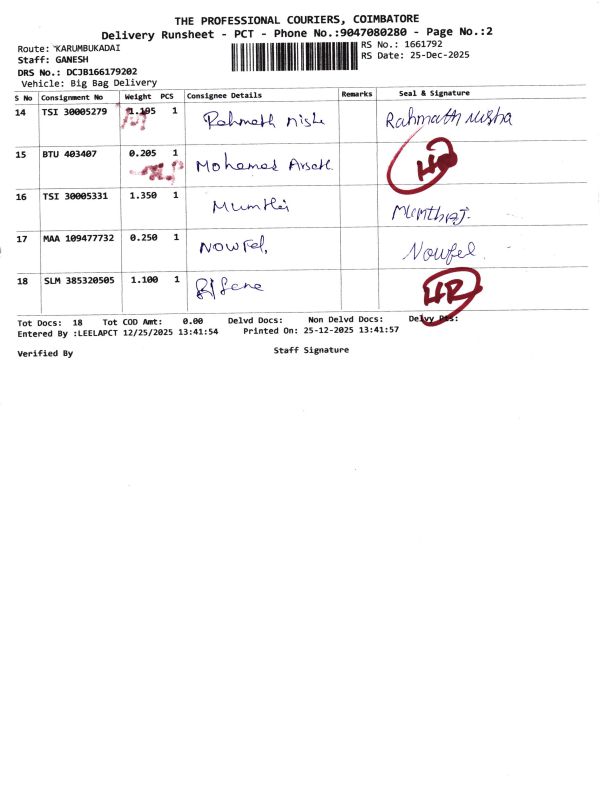 THE PROFESSIONAL COURIERS, COIMBATORE
Delivery Runsheet - PCT - Phone No.:9047080280 - Page No.:2
Route: KARUMBUKADAI
RS No.: 1661792
Staff: GANESH
RS Date: 25-Dec-2025
DRS No.: DCJB166179202
Vehicle: Big Bag Delivery
S No Consignment No Weight PCS Consignee Details Remarks Seal & Signature
14 TSI 30005279 1.105 1 Rahmath Nisha Rahmath nisha
15 BTU 403407 0.205 1 Mohamed Arsath
16 TSI 30005331 1.350 1 Mumthaj Mumthaj.
17 MAA 109477732 0.250 1 NOWFel, Noufel.
18 SLM 385320505 1.100 1 HR
Tot Docs: 18 Tot COD Amt: 0.00 Delvd Docs: Non Delvd Docs: Delvy Pts:
Entered By :LEELAPCT 12/25/2025 13:41:54 Printed On: 25-12-2025 13:41:57
Verified By Staff Signature